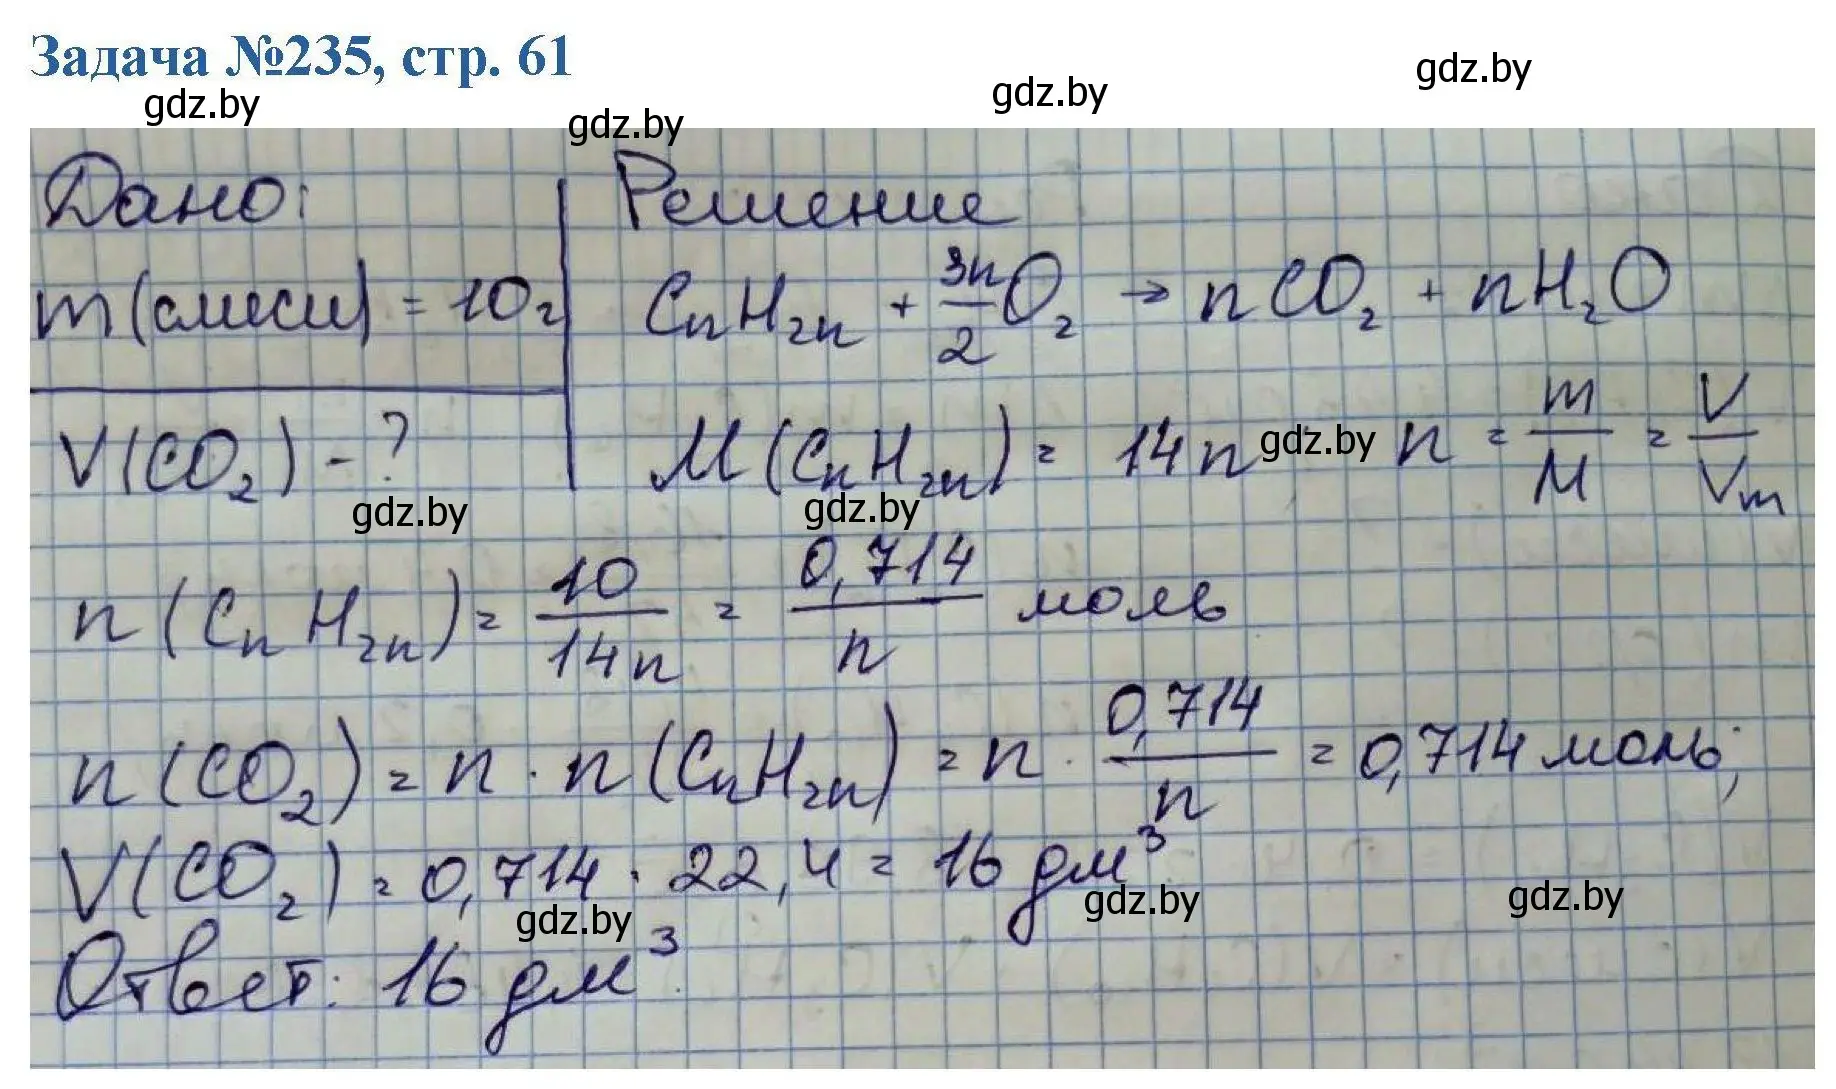 Задача №235, стр. 61
gdz.by gdz.by gdz.by gdz.by
Дано:
m(смеси) = 10г
V(CO₂) - ?
gdz.by
Решение
CnH₂n + 3n/2 O₂ → nCO₂ + nH₂O
M(CnH₂n) = 14n gdz.by n = m/M = V/Vm
gdz.by
n(CnH₂n) = 10/14n = 0,714/n моль
n(CO₂) = n · n(CnH₂n) = n · 0,714/n = 0,714 моль;
V(CO₂) = 0,714 · 22,4 = 16 дм³
gdz.by gdz.by gdz.by
Ответ: 16 дм³.